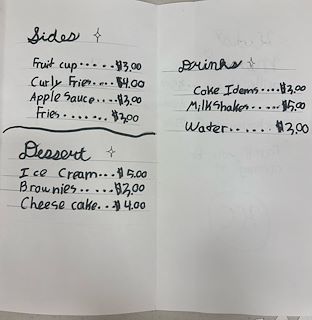 Sides
Fruit cup.....$3.00
Curly Fries....$4.00
Apple Sauce...$3.00
Fries.....$3.00
Dessert
Ice Cream...$5.00
Brownies.....$3.00
Cheese cake..$4.00
Drinks
Coke Idems....$3.00
Milkshakes....$5.00
Water......$2.00